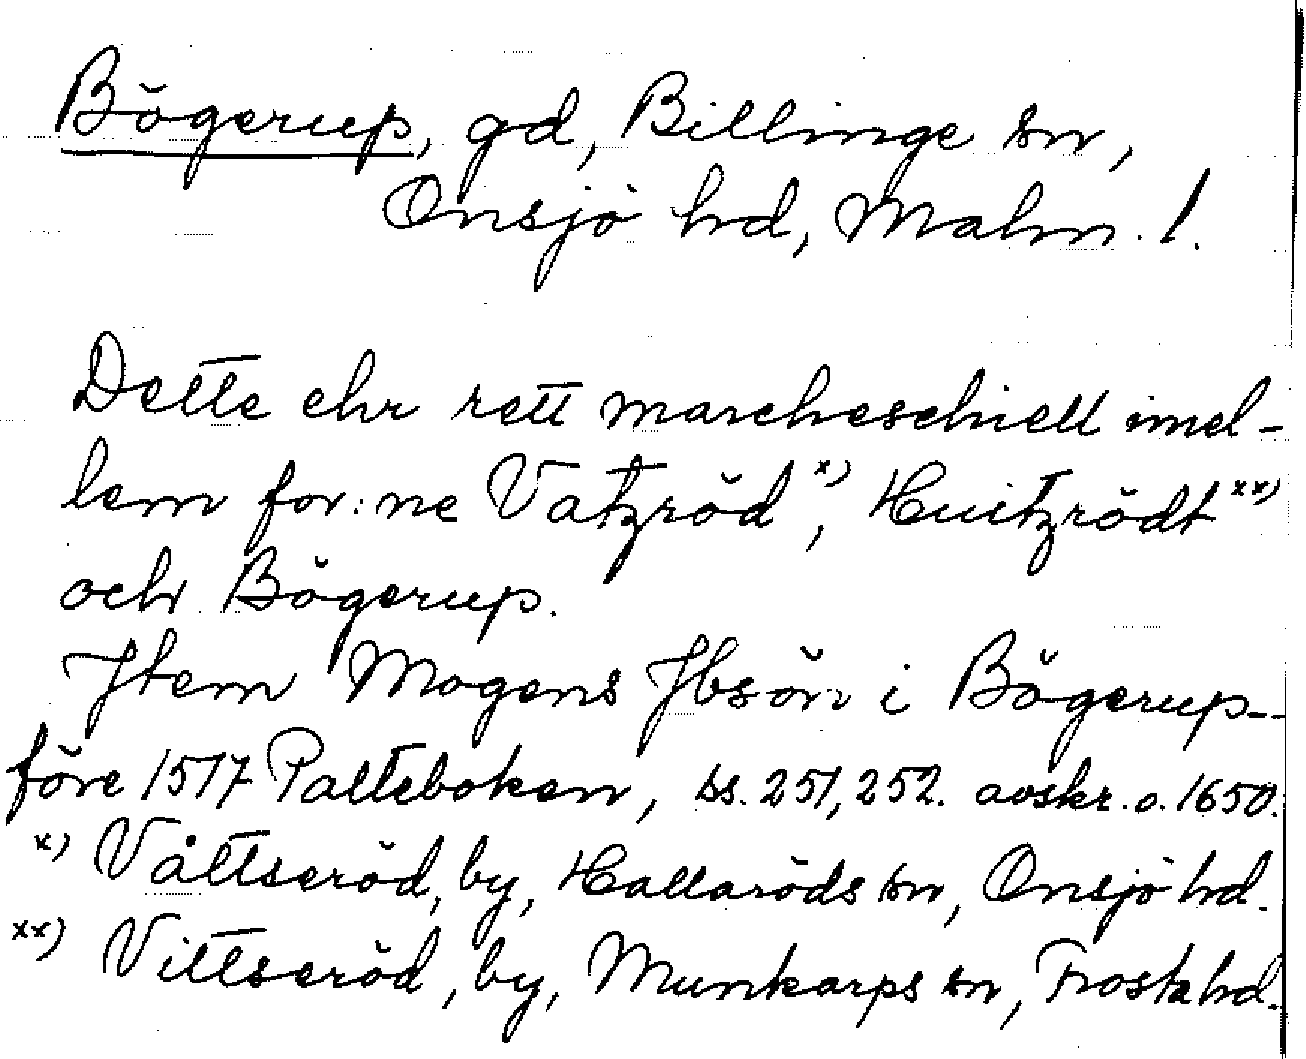 Bögerup, gd, Billinge sn,
Onsjö hd, Malm. l.
Dette ehr rett marcheschiell imel-
lem for:ne Vatzröd x), Huitzrödt xx)
och Bögerup.
Jtem Mogens Jbsön i Bögerup--
före 1517 Palteboken, ss. 251, 252. avskr. o. 1650.
x) Våttseröd, by, Hallaröds sn, Onsjö hd.
xx) Vittseröd, by, Munkarps sn, Frosta hd.